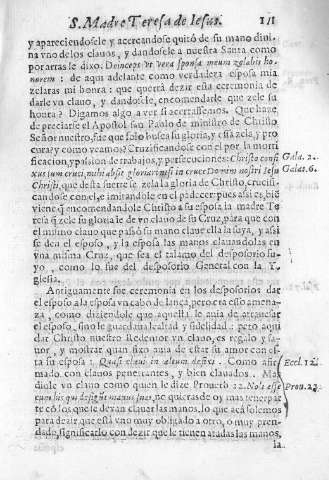 S. Madre Teresa de Iesus. 111
y apareciendosele y acercandose quitó de su mano divi-
na vno de los clauos, y dandosele a nuestra Santa como
por arras le dixo. Deinceps vt vera sponsa meum zelabis ho-
norem: de aqui adelante como verdadera esposa mia
zelaras mi honra: que querrá dezir esta ceremonia de
darle vn clauo, y dandosele, encomendarle que zele su
honra? Digamos algo a ver si acertassemos. Que haze,
de preciarse el Apostol san Pablo de ministro de Christo
Señor nuestro, sino que solo busca su gloria, y essa zela, y pro
cura? y como veamos? Cruzificandose con el por la morti
ficacion, y passion de trabajos, y persecuciones: Christo confi Gala. 2.
xus sum cruci, mihi absit gloriari nisi in cruce Domini nostri Iesu Galat. 6.
Christi, que desta suerte se zela la gloria de Christo, crucifi-
candose con el, e imitandole en el padecer: pues assi es, biē
viene q̄ encomendandole Christo a su esposa la madre Te
resa q̄ zele su gloria le de vn clauo de su Cruz, para que con
el mismo clauo que passó su mano claue ella la suya, y assi
se dea el esposo, y la esposa las manos clauandolas en
vna misma Cruz, que sea el talamo del desposorio su-
yo, como lo fue del desposorio General con la Y-
glesia.
Antiguamente fue ceremonia en los desposorios dar
el esposo a la esposa vn cabo de lança, pero era esso amena-
za, como diziendole que aquella le auia de atrauesar
el esposo, sino le guardaua lealtad y fidelidad: pero aqui
dar Christo nuestro Redentor vn clauo, es regalo y fa-
uor, y mostrar quan fixo auia de estar su amor con es-
ta su esposa: Quasi claui in altum defixi. Como afir- Eccl. 12.
mado, con clauos penetrantes, y bien clauados. Mas
diole vn clauo como quien le dize Prouerb 22. Noli esse Prou. 22.
cum his qui defigunt manus suas, no quieras de oy mas tener par
te cō los que le deuan clauar las manos, lo que acá solemos
para dezir que está vno muy obligado a otro, o muy pren-
dado, significarlo con dezir que le tienen atadas las manos,
la